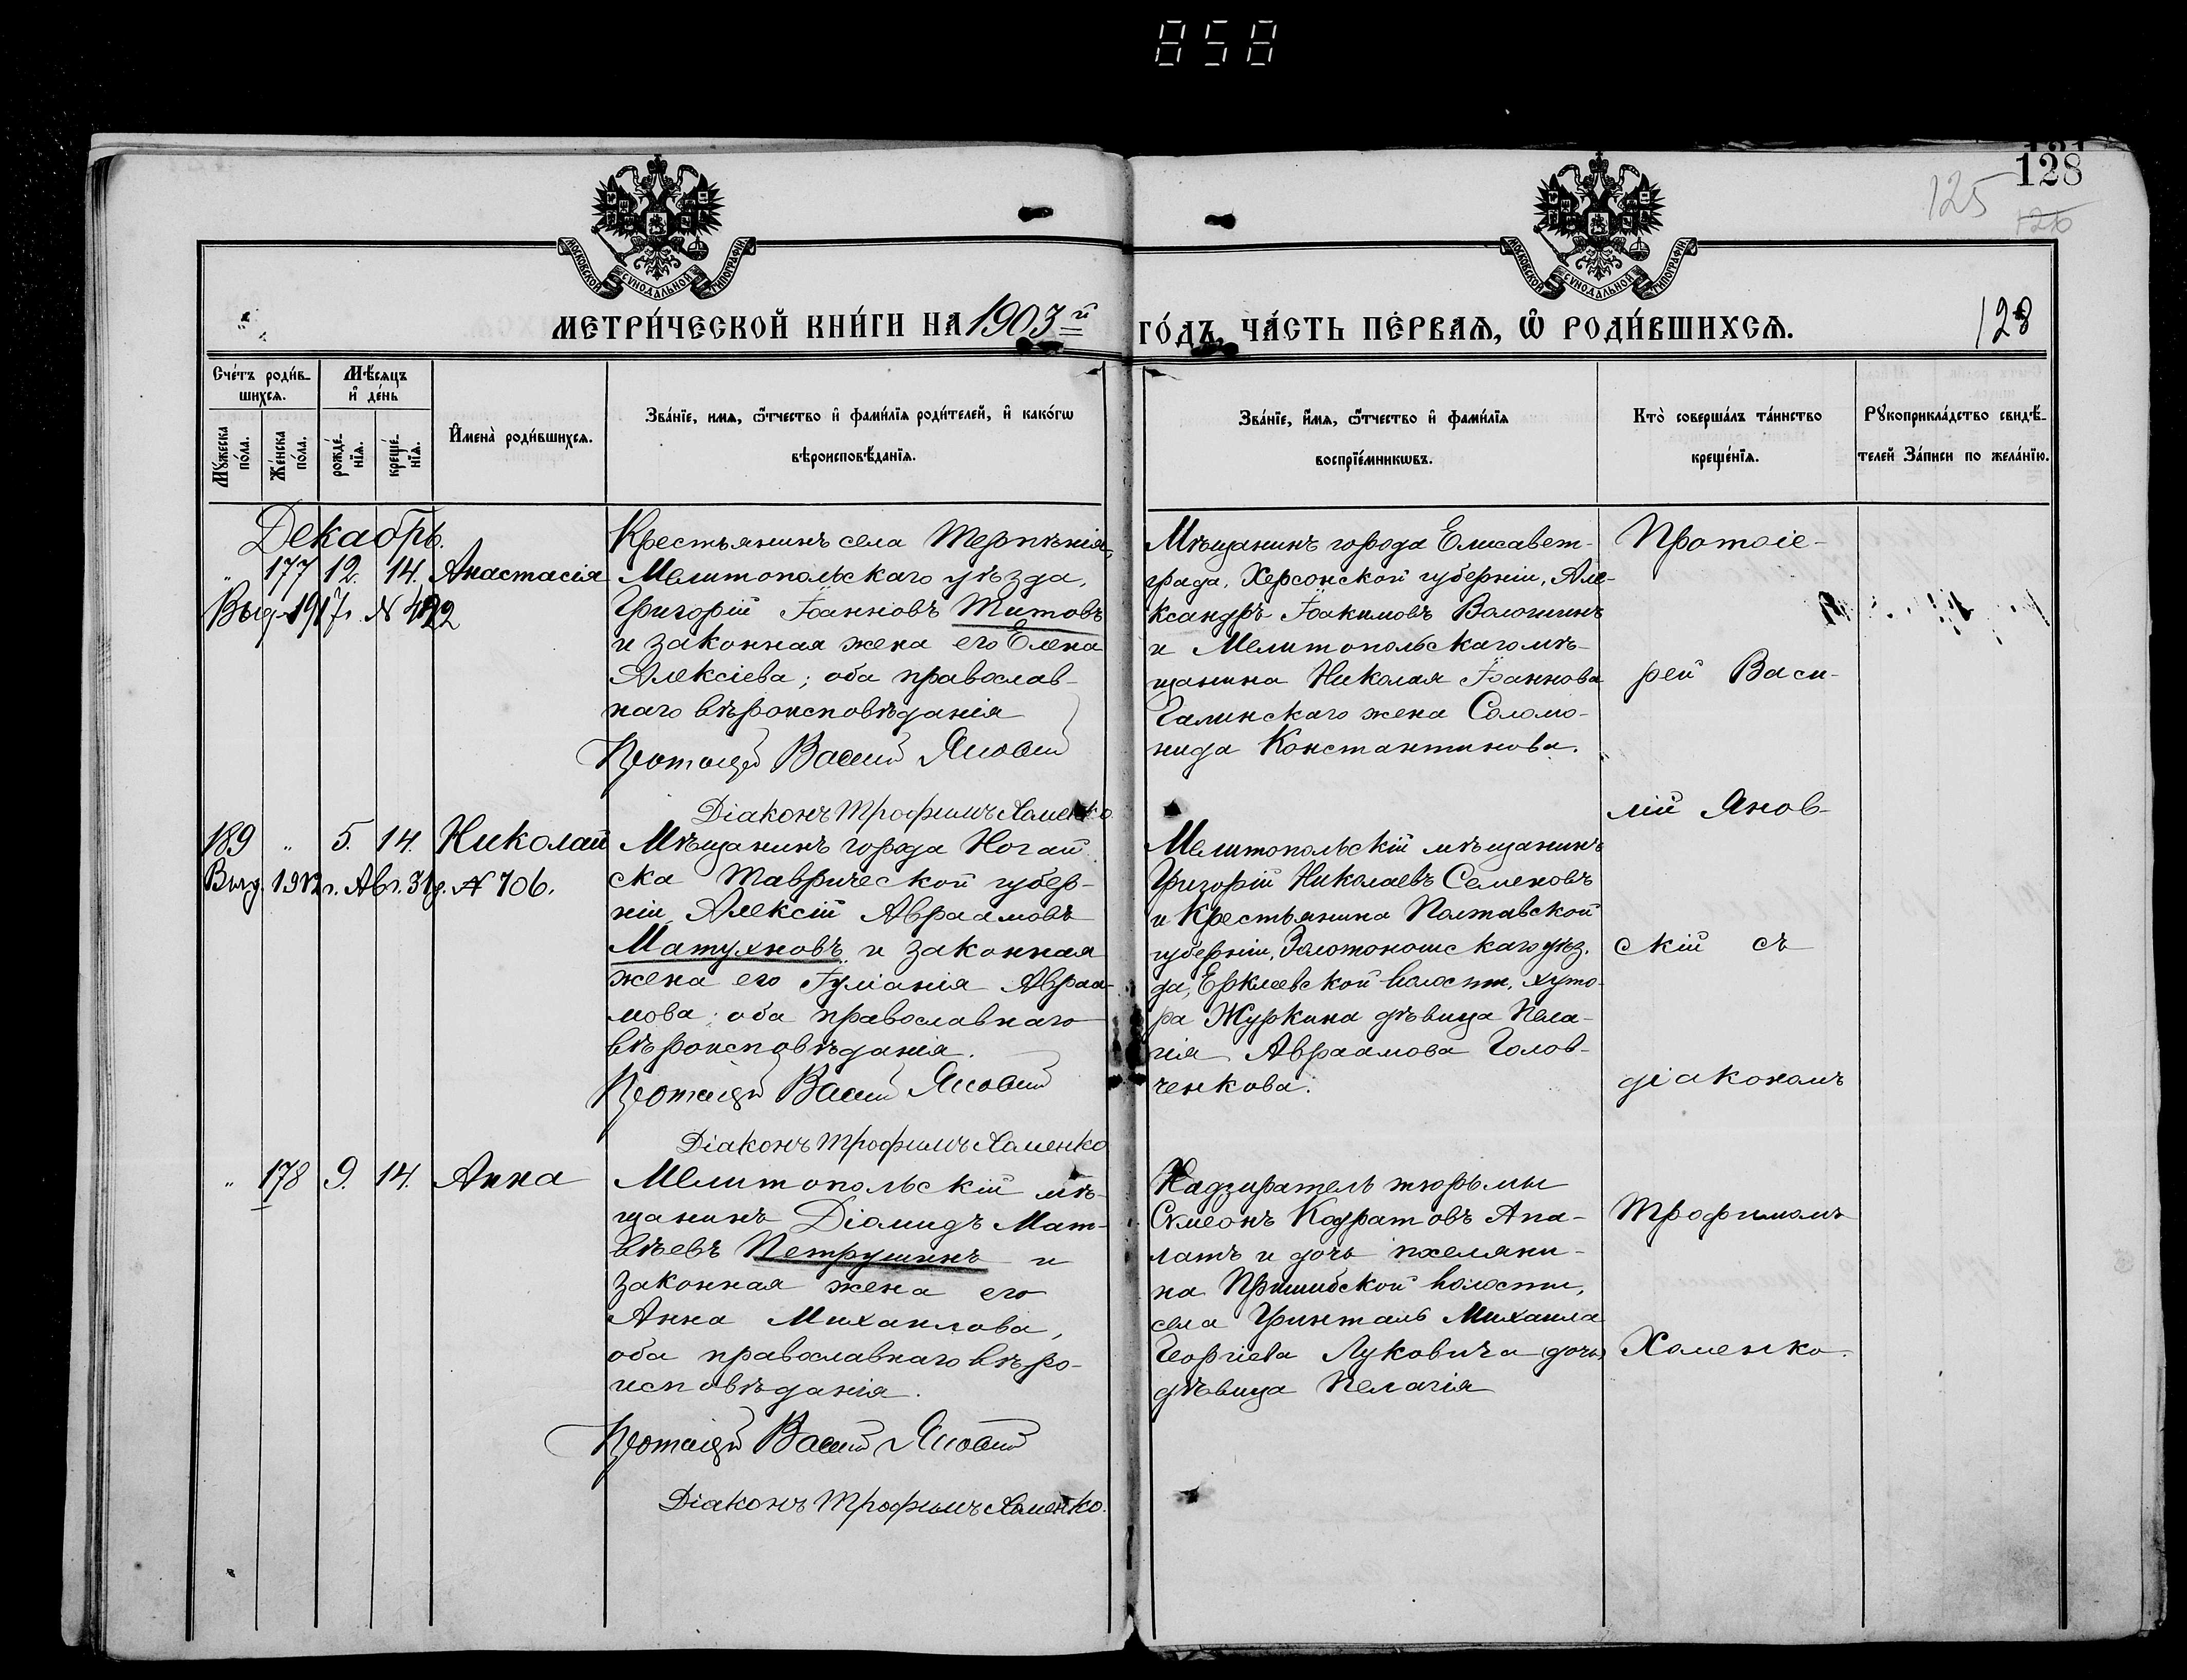 858
128
125
126
МОСКОВСКОЙ СУНОДАЛЬНОЙ ТИПОГРАФІИ
МОСКОВСКОЙ СУНОДАЛЬНОЙ ТИПОГРАФІИ
МЕТРИ́ЧЕСКОЙ КНИ́ГИ НА 1903й ГО́ДЪ, ЧА́СТЬ ПЕ́РВАЯ, Ѿ РОДИ́ВШИХСЯ.
128
Сче́тъ роди́в-
шихся.
Мѣ́сяцъ
и де́нь
Му́жеска
по́ла.
Же́нска
по́ла.
рожде́-
нїя.
креще́-
нїя.
Имена̀ роди́вшихся.
Зва́нїе, имя, ѻ҆́тчество и фами́лїя роди́телей, и како́гѡ
вѣроисповѣ́данїя.
Зва́нїе, и́мя, ѻ҆́тчество и фами́лїя
воспрїе́мникѡвъ.
Кто̀ соверша́лъ та́инство
креще́нїя.
Рꙋкоприкла́дство свидѣ́-
телей За́писи по жела́нїю.
Декабрь.
" 177 12. 14. Анастасія
Выд. 1917г. №
Крестьянинъ села Терпѣнія,
Мелитопольскаго уѣзда,
Григорій Іоанновъ Титовъ
и законная жена его Елена
Алексіева; оба православ-
наго вѣроисповѣданія
Протоіерей Василій Яновскій
Діаконъ Трофимъ Хоменко
Мѣщанинъ города Елисавет-
града, Херсонской губерніи, Але-
ксандръ Іоакимовъ Волошинъ
и Мелитопольскаго мѣ-
щанина Николая Іоаннова
Галинскаго жена Соломо-
нида Константинова.
Протоіе-
рей Васи-
лій Янов-
скій съ
діакономъ
Трофимомъ
Хоменко.
189 " 5. 14. Николай
Выд. 1912г. Авг. 31д. № 706.
Мѣщанинъ города Ногай
ска Таврической губер-
ніи, Алексій Авраамовъ
Матухновъ и законная
жена его Іуліанія Авраа-
мова; оба православнаго
вѣроисповѣданія.
Протоіерей Василій Яновскій
Діаконъ Трофимъ Хоменко
Мелитопольскій мѣщанинъ
Григорій Николаевъ Семеновъ
и крестьянина Полтавской
губерніи, Золотоношскаго уѣз.
да, Еркліевской волости, хуто-
ра Журкина дѣвица Пела-
гія Авраамова Голов-
ченкова.
" 178 9. 14. Анна
Мелитопольскій мѣ-
щанинъ Діомидъ Мат-
вѣевъ Петрушинъ и
законная жена его
Анна Михаилова,
оба православнаго вѣро-
исповѣданія.
Протоіерей Василій Яновскій
Діаконъ Трофимъ Хоменко.
Надзиратель тюрьмы
Симеонъ Кодратовъ Апа-
латъ и дочь поселяни-
на Пришибской волости,
села Гринталь Михаила
Георгіева Луковича дочь,
дѣвица Пелагія